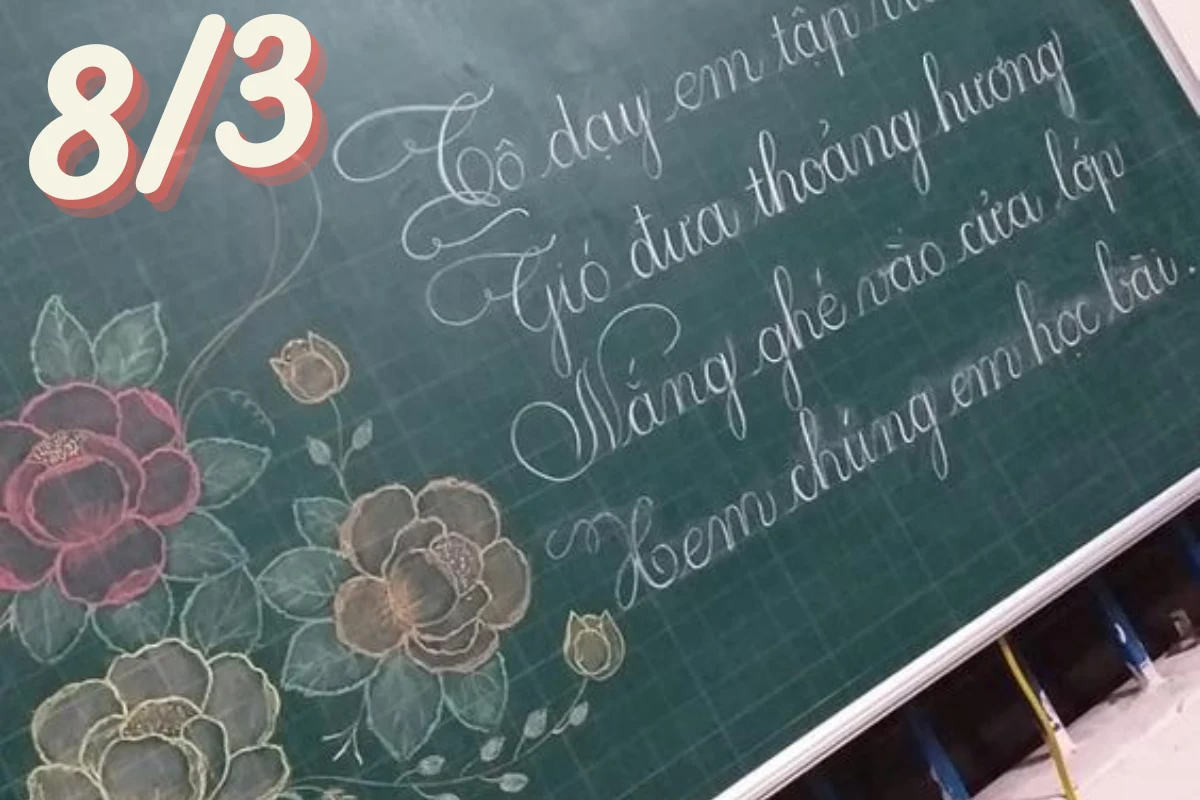 8/3
Cô dạy em tập
Gió đưa thoảng hương
Nắng ghé vào cửa lớp
Xem chúng em học bài.